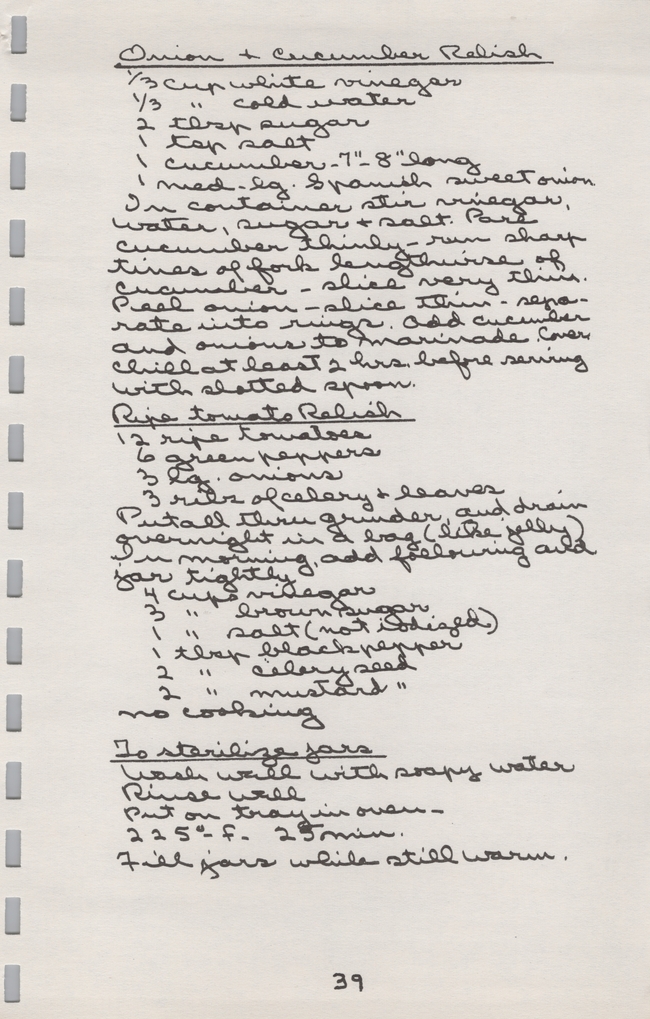 Onion + Cucumber Relish
1/3 cup white vinegar
1/3 " cold water
2 tbsp sugar
1 tsp salt
1 cucumber - 7" - 8" long
1 med - lg. Spanish sweet onion
In container stir vinegar,
water, sugar + salt. Pare
cucumber thinly - run sharp
tines of fork lengthwise of
cucumber - slice very thin.
Peel onion - slice thin - sepa-
rate into rings. Add cucumber
and onions to marinade. Cover
chill at least 2 hrs. before serving
with slotted spoon.
Ripe tomato Relish
12 ripe tomatoes
6 green peppers
3 lg. onions
3 ribs of celery + leaves
Put all thru grinder, and drain
overnight in a bag (like jelly)
In morning, add following and
jar tightly
4 cups vinegar
3 " brown sugar
1 " salt (not iodized)
1 tbsp black pepper
2 " celery seed
2 " mustard "
no cooking
To sterilize jars
Wash well with soapy water
Rinse well
Put on tray in oven -
225° - F. 25 min.
Fill jars while still warm.
39